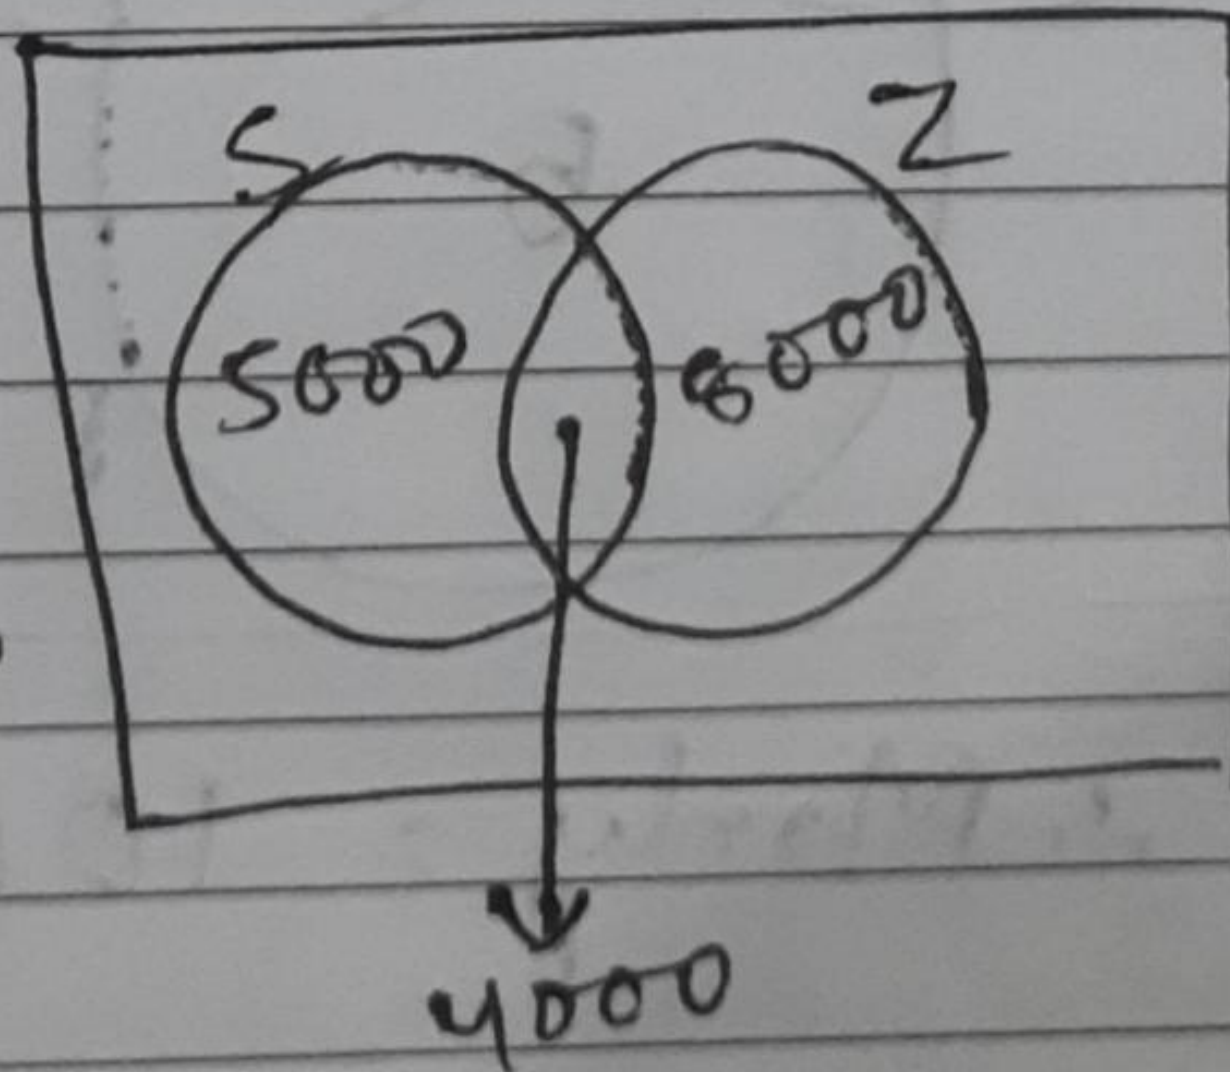 S Z
5000 8000
4000